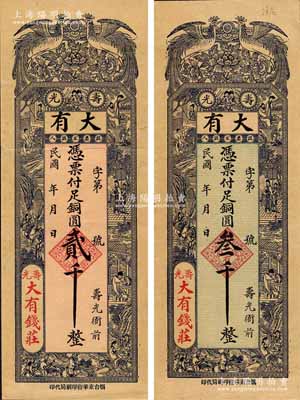 上海陽明拍賣
光 壽
有大
憑票付足銅圓貳千整
字第 號
民國 年 月 日
壽光衙前
壽光
大有錢莊
烟台東華石印刷局代印
上海陽明拍賣
光 壽
有大
憑票付足銅圓叁千整
字第 號
民國 年 月 日
壽光衙前
壽光
大有錢莊